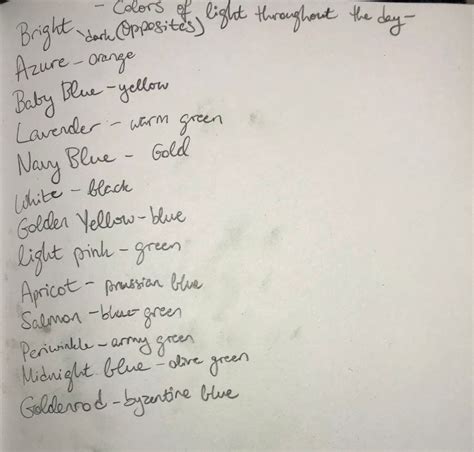 - Colors of light throughout the day -
Bright \ dark (Opposites)
Azure - orange
Baby Blue - yellow
Lavender - warm green
Navy Blue - Gold
White - black
Golden Yellow - blue
light pink - green
Apricot - prussian blue
Salmon - blue green
Periwinkle - army green
Midnight blue - olive green
Goldenrod - byzantine blue